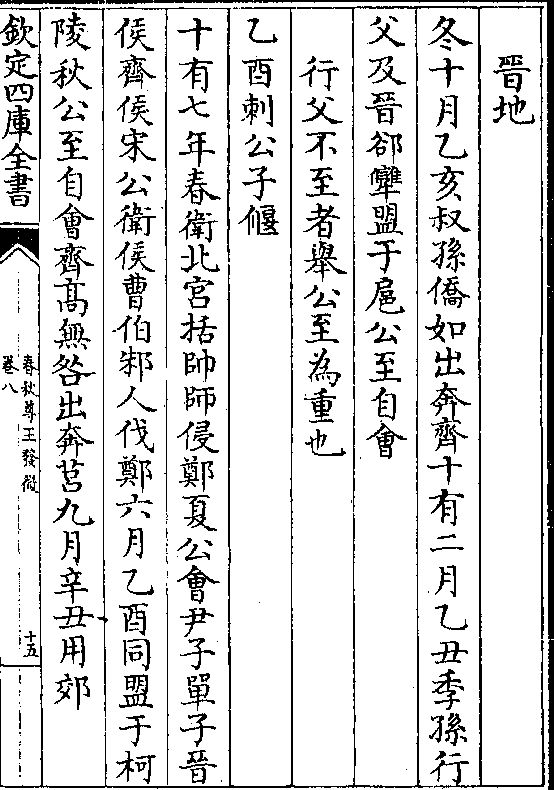 晉地
冬十月乙亥叔孫僑如出奔齊十有二月乙丑季孫行
父及晉郤犫盟于扈公至自會
行父不至者舉公至為重也
乙酉刺公子偃
十有七年春衛北宮括帥師侵鄭夏公會尹子單子晉
侯齊侯宋公衛侯曹伯邾人伐鄭六月乙酉同盟于柯
陵秋公至自會齊髙無咎出奔莒九月辛丑用郊
欽定四庫全書
春秋尊王發微
卷八
十五